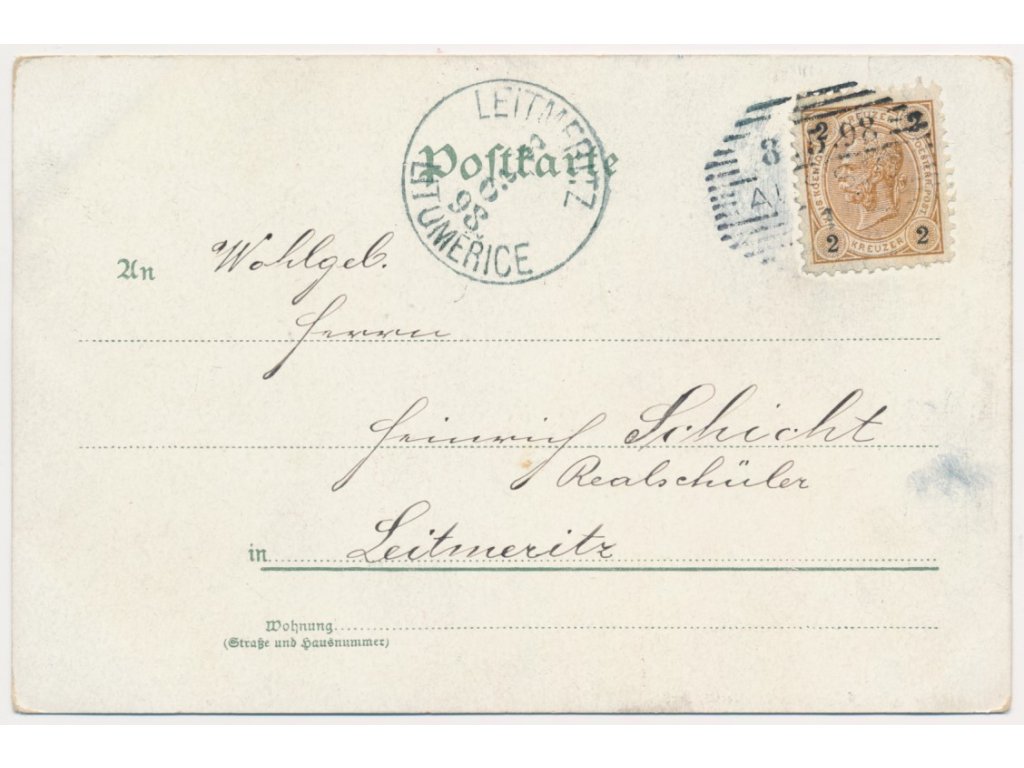 Postkarte
LEITMERITZ
LEITOMĚŘICE
98
8
98
2 2
KREUZER
2 2
An Wohlgeb.
Herrn
Heinrich Schicht
Realschüler
in Leitmeritz
Wohnung
(Straße und Hausnummer)